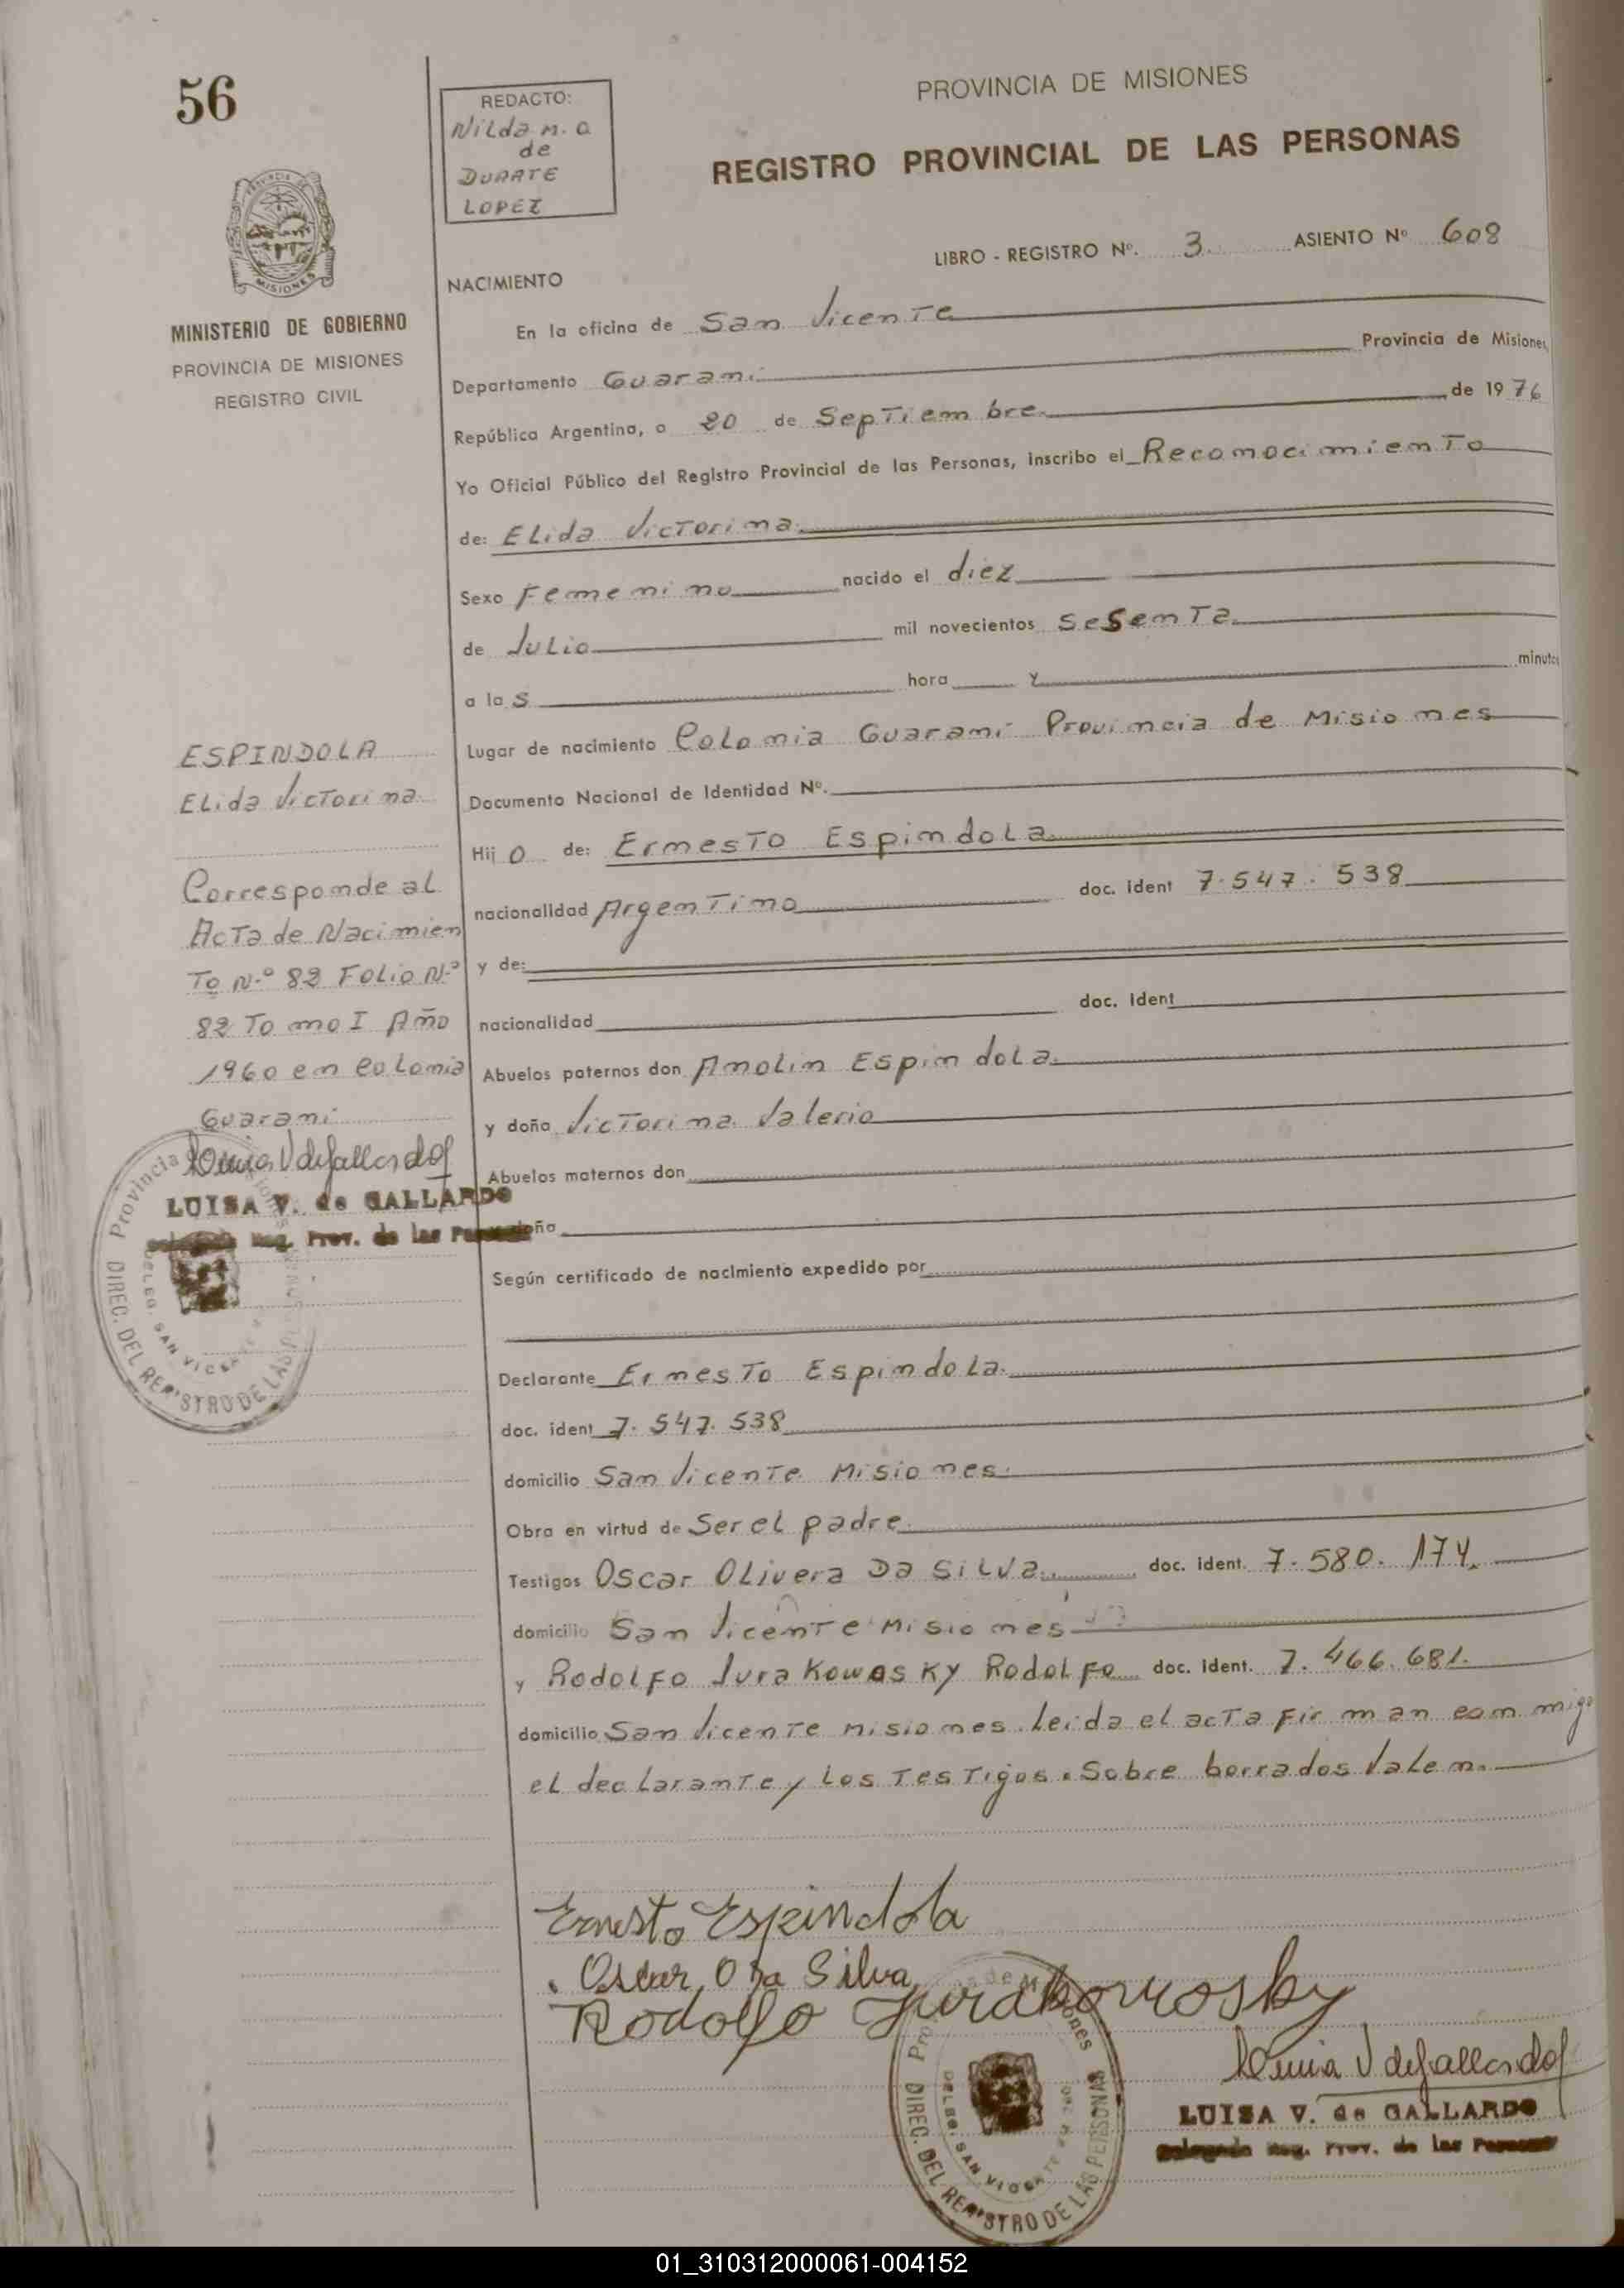 56
REDACTO:
Nilda M. A.
de
DUARTE
LOPEZ
PROVINCIA DE MISIONES
REGISTRO PROVINCIAL DE LAS PERSONAS
MISIONES
MINISTERIO DE GOBIERNO
PROVINCIA DE MISIONES
REGISTRO CIVIL
LIBRO - REGISTRO Nº. 3. ASIENTO Nº 608
NACIMIENTO
En la oficina de San Vicente
Departamento Guarani Provincia de Misiones
República Argentina, a 20 de Septiembre de 1976
Yo Oficial Público del Registro Provincial de las Personas, inscribo el Reconocimiento
de: Elida Victorina
Sexo Femenino nacido el diez
de Julio mil novecientos sesenta
a las hora y minutos
Lugar de nacimiento Colonia Guarani Provincia de Misiones
Documento Nacional de Identidad Nº.
Hijo de: Ernesto Espindola
nacionalidad Argentino doc. ident 7.547.538
y de:
nacionalidad doc. ident
Abuelos paternos don Anolin Espindola
y doña Victorina Valerio
Abuelos maternos don
doña
Según certificado de nacimiento expedido por
Declarante Ernesto Espindola
doc. ident 7.547.538
domicilio San Vicente Misiones
Obra en virtud de Ser el padre
Testigos Oscar Olivera Da Silva doc. ident. 7.580.174
domicilio San Vicente Misiones
y Rodolfo Jurakowosky Rodolfo doc. ident. 7.466.681.
domicilio San Vicente Misiones. Leida el acta firman conmigo
el declarante y los testigos. Sobre borrados Valen.
ESPINDOLA
Elida Victorina
Corresponde al
Acta de Nacimien
to N.º 82 Folio N.º
82 Tomo I Año
1960 en Colonia
Guarani
Luisa V de Gallardo
LUISA V. de GALLARDO
Delegada Reg. Prov. de las Personas
Provincia de Misiones
DIREC. DEL REGISTRO DE LAS PERSONAS
DELEG. SAN VICENTE
Ernesto Espindola
Oscar O Da Silva
Rodolfo Jurakowosky
Provincia de Misiones
DIREC. DEL REGISTRO DE LAS PERSONAS
DELEG. SAN VICENTE
Luisa V de Gallardo
LUISA V. de GALLARDO
Delegada Reg. Prov. de las Personas
01_310312000061-004152